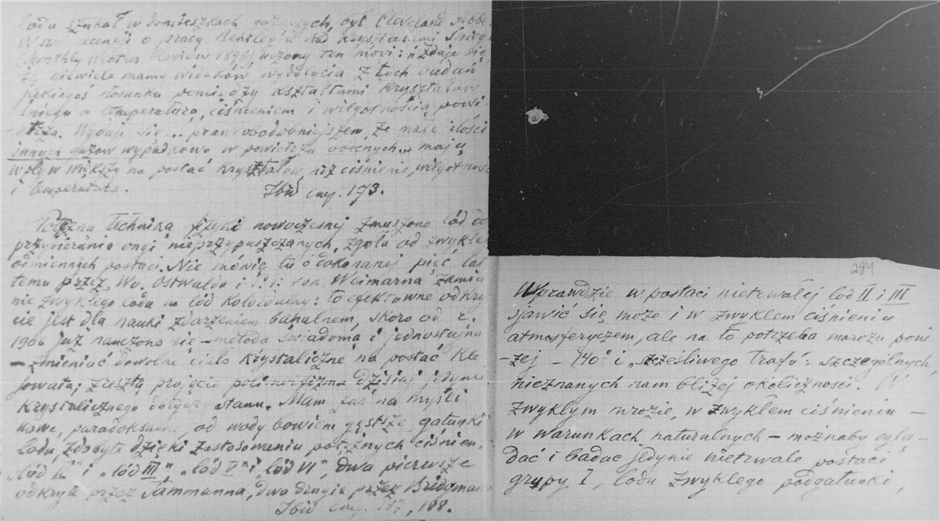 lodu szukał w domieszkach gazowych, był Cleveland Abbe.
W swej recenzji o pracy Bentley'a nad kryształami śniegu
(Monthly Weather Review 1898) uczony ten mówi: „zdaje się
iż niewiele mamy widoków wydobycia z tych badań
jakiegoś stosunku pomiędzy kształtami kryształów
śniegu a temperaturą, ciśnieniem i wilgotnością powi-
etrza. Wydaje się... prawdopodobniejszem, że małe ilości
innych gazów wypadkowo w powietrzu obecnych... mają
wpływ większy na postać kryształów, niż ciśnienie, wilgotność
i temperatura.
Ibid cay. 173.
Potężna technika fizyki nowoczesnej zmuszono lód do
przybierania ongi nieprzypuszczanych, zgoła od zwykłe
odmiennych postaci. Nie mówię tu o dokonanej pięć lat
temu przez Wo. Ostwalda i von Weimarna zamia
nie zwykłego lodu na lód koloidalny: to efektowne odkry
cie jest dla nauki zdarzeniem banalnem, skoro od r.
1906 już nauczono się – metodą świadomą i jednostajną
– zmieniać dowolne ciało krystaliczne na postać kle
jowatą; zresztą pojęcie polimorfizmu dzisiaj jedynie
krystalicznego dotyczy stanu. Mam zaś na myśli
nowe, paradoksalne, od wody bowiem gęstsze gatunki
lodu, zdobyte dzięki zastosowaniu potężnych ciśnień
„lód II" i „lód III", „lód V" i lód VI", dwa pierwsze
odkryte przez Tammanna, dwa drugie przez Bridgmana
Ibid cay. 188.
284
Wprawdzie w postaci nietrwałej lód II i III
zjawić się może i w zwykłem ciśnieniu
atmosferycznem, ale na to potrzeba mrozu poni
żej – 140° i „szczęśliwego trafu": szczególnych,
nieznanych nam bliżej okoliczności.
zwykłym mrozie, w zwykłem ciśnieniu –
w warunkach naturalnych – możnaby oglą-
dać i badać jedynie nietrwałe postaci
grupy I, lodu zwykłego podgatunki,